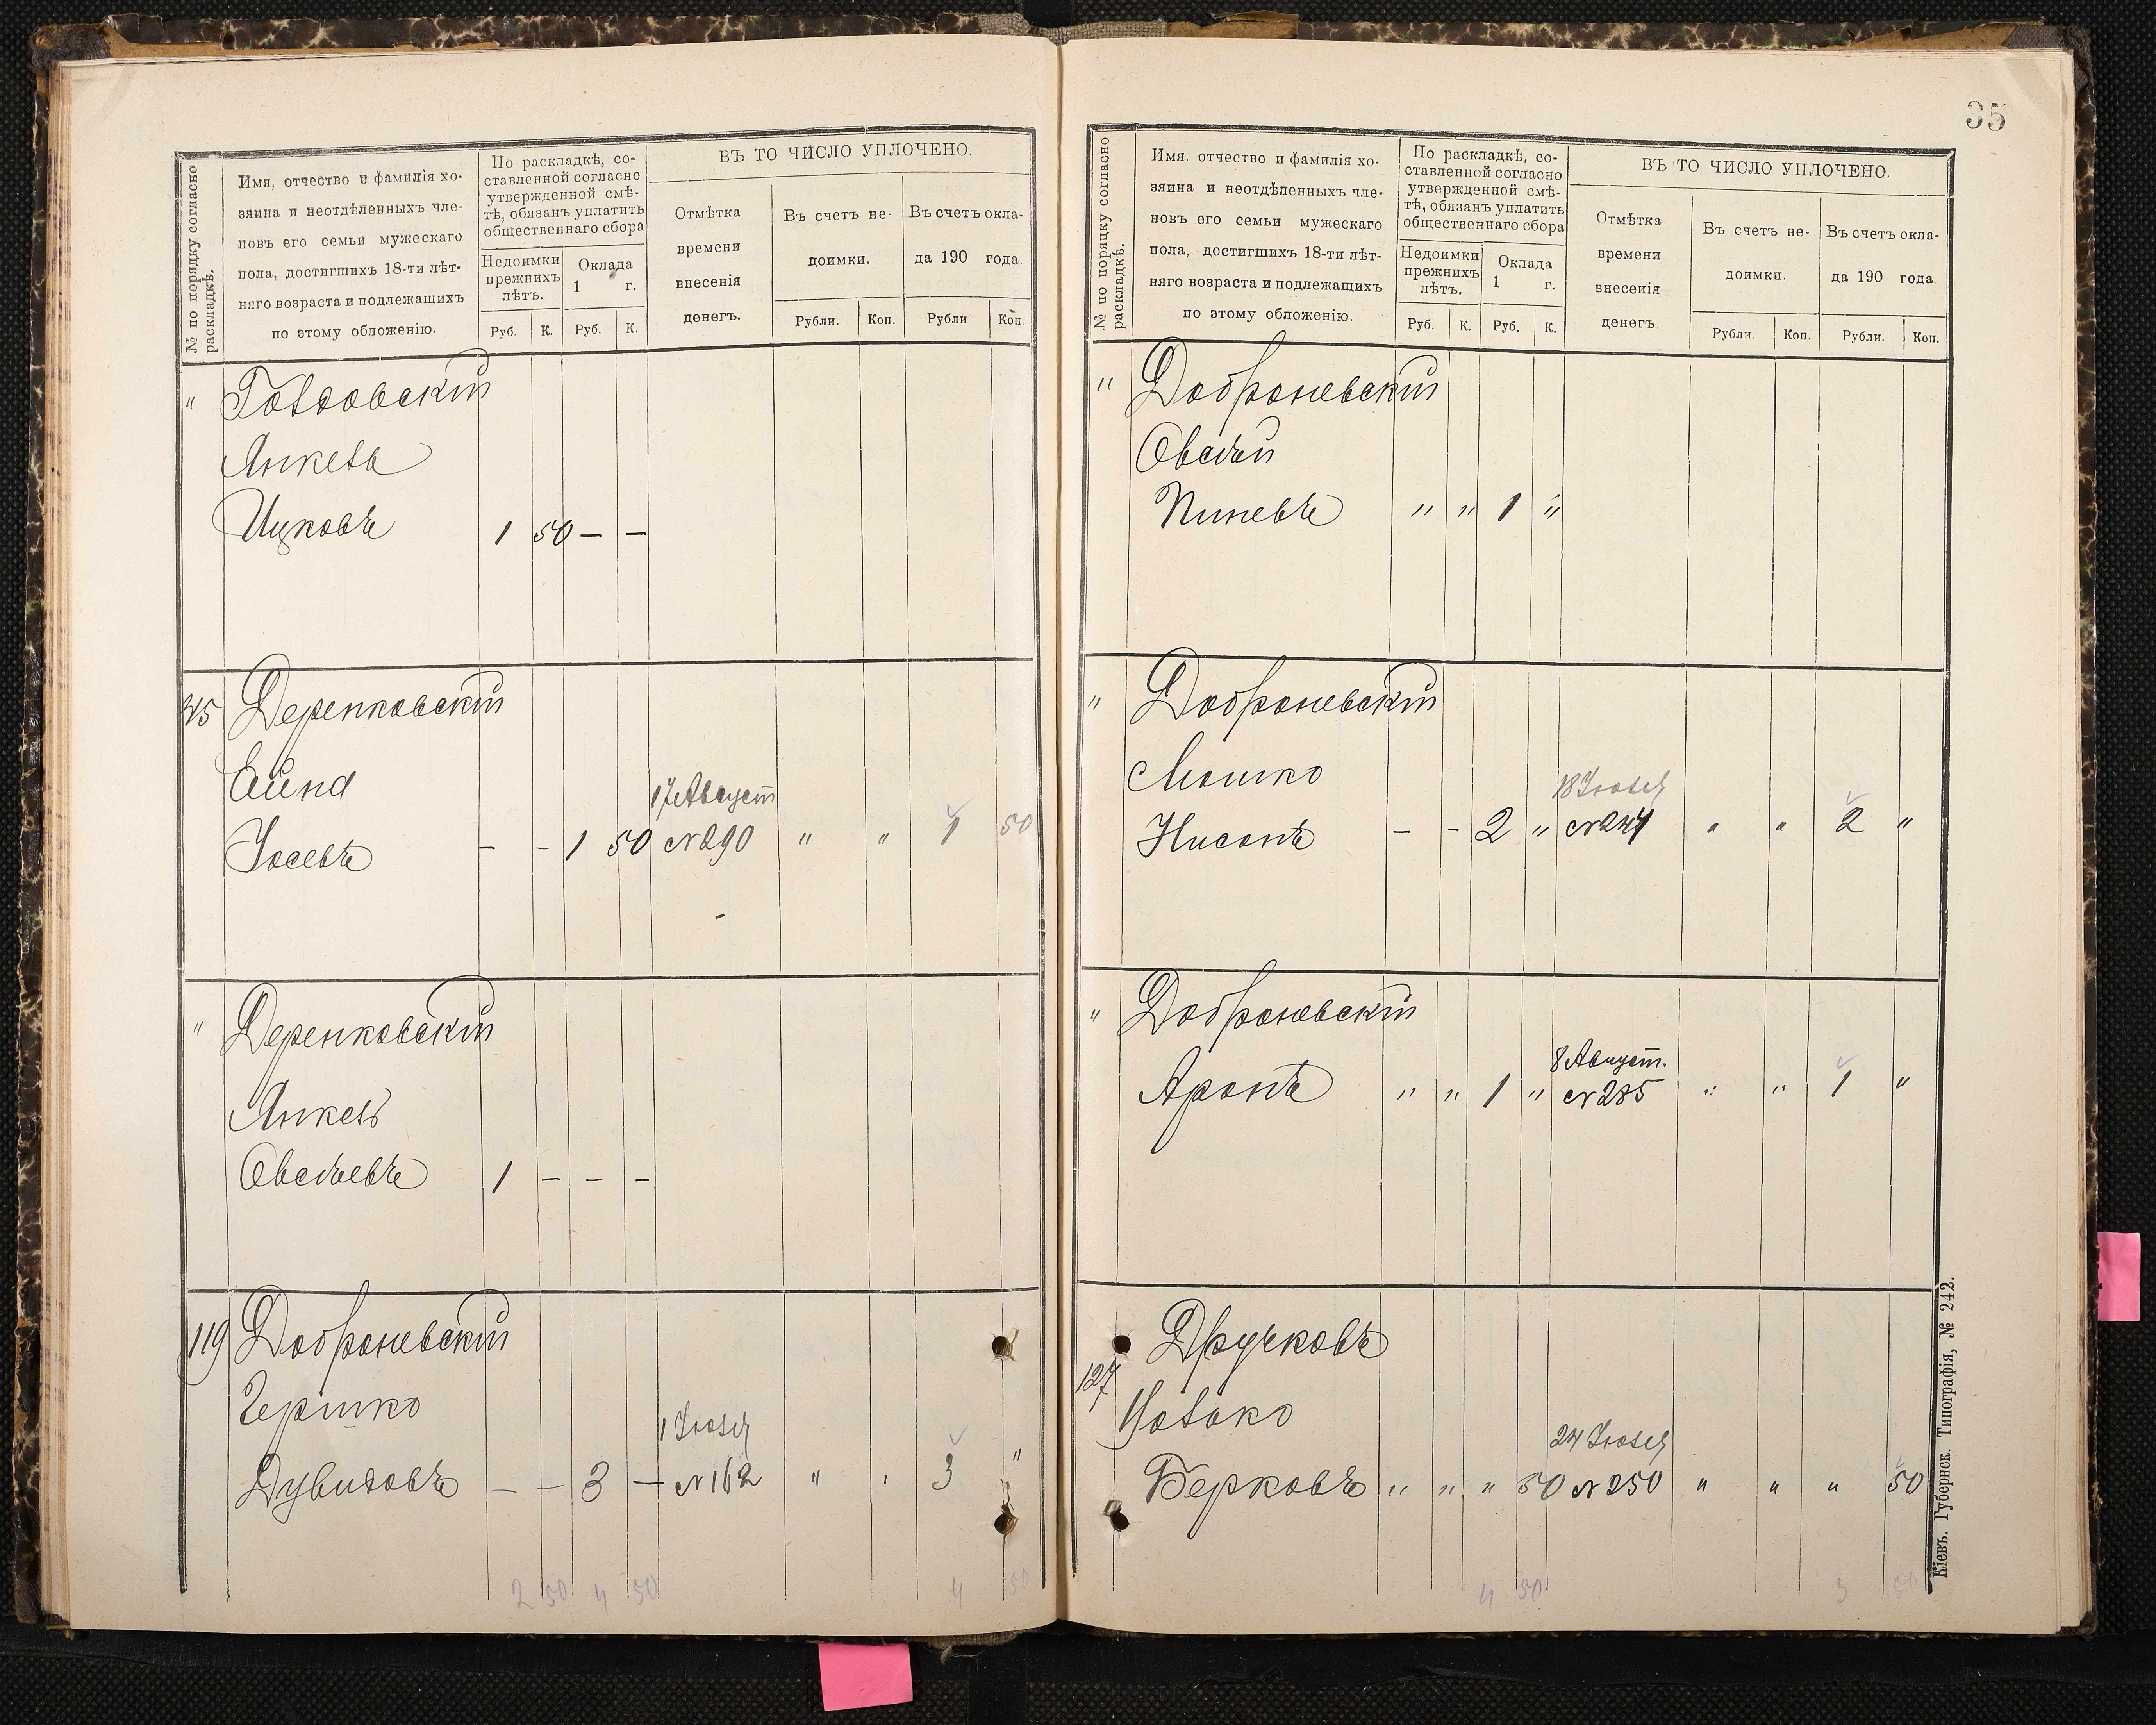 35
№ по порядку согласно раскладкѣ.
Имя, отчество и фамилія хо-
зяина и неотдѣленныхъ чле-
новъ его семьи мужескаго
пола, достигшихъ 18-ти лѣт-
няго возраста и подлежащихъ
по этому обложенію.
По раскладкѣ, со-
ставленной согласно
утвержденной смѣ-
тѣ, обязанъ уплатить
общественнаго сбора
Недоимки
прежнихъ
лѣтъ.
Оклада
1 г.
Руб. К. Руб. К.
ВЪ ТО ЧИСЛО УПЛОЧЕНО.
Отмѣтка
времени
внесенія
денегъ.
Въ счетъ не-
доимки.
Въ счетъ окла-
да 190 года.
Рубли. Коп. Рубли Коп
"
Янкель
Ицковъ 1 50 — —
Деренковскій
17 Август
Іосевъ — — 1 50 №290 " " 1 50
" Деренковскій
Янкель
Овсѣевъ 1 — — —
119 Доброневскій
Гершко
1 Іюля
Дувидовъ — — 3 — №162 " " 3 "
2 50 4 50 4 50
№ по порядку согласно раскладкѣ.
Имя, отчество и фамилія хо-
зяина и неотдѣленныхъ чле-
новъ его семьи мужескаго
пола, достигшихъ 18-ти лѣт-
няго возраста и подлежащихъ
по этому обложенію.
По раскладкѣ, со-
ставленной согласно
утвержденной смѣ-
тѣ, обязанъ уплатить
общественнаго сбора
Недоимки
прежнихъ
лѣтъ.
Оклада
1 г.
Руб. К. Руб. К.
ВЪ ТО ЧИСЛО УПЛОЧЕНО.
Отмѣтка
времени
внесенія
денегъ
Въ счетъ не-
доимки.
Въ счетъ окла-
да 190 года
Рубли. Коп. Рубли. Коп.
" Доброневскій
Овсѣй
Пиневъ " " 1 "
" Доброневскій
Мошко
18 Іюля
Нисонъ — — 2 " " " 2 "
" Доброневскій
8 Август.
Аронъ " " 1 " №285 " " 1 "
Дручковъ
127
24 Іюля
Берковъ " " " 50 №250 " " " 50
4 50 3 50
Кіевъ. Губернск. Типографія, № 242.